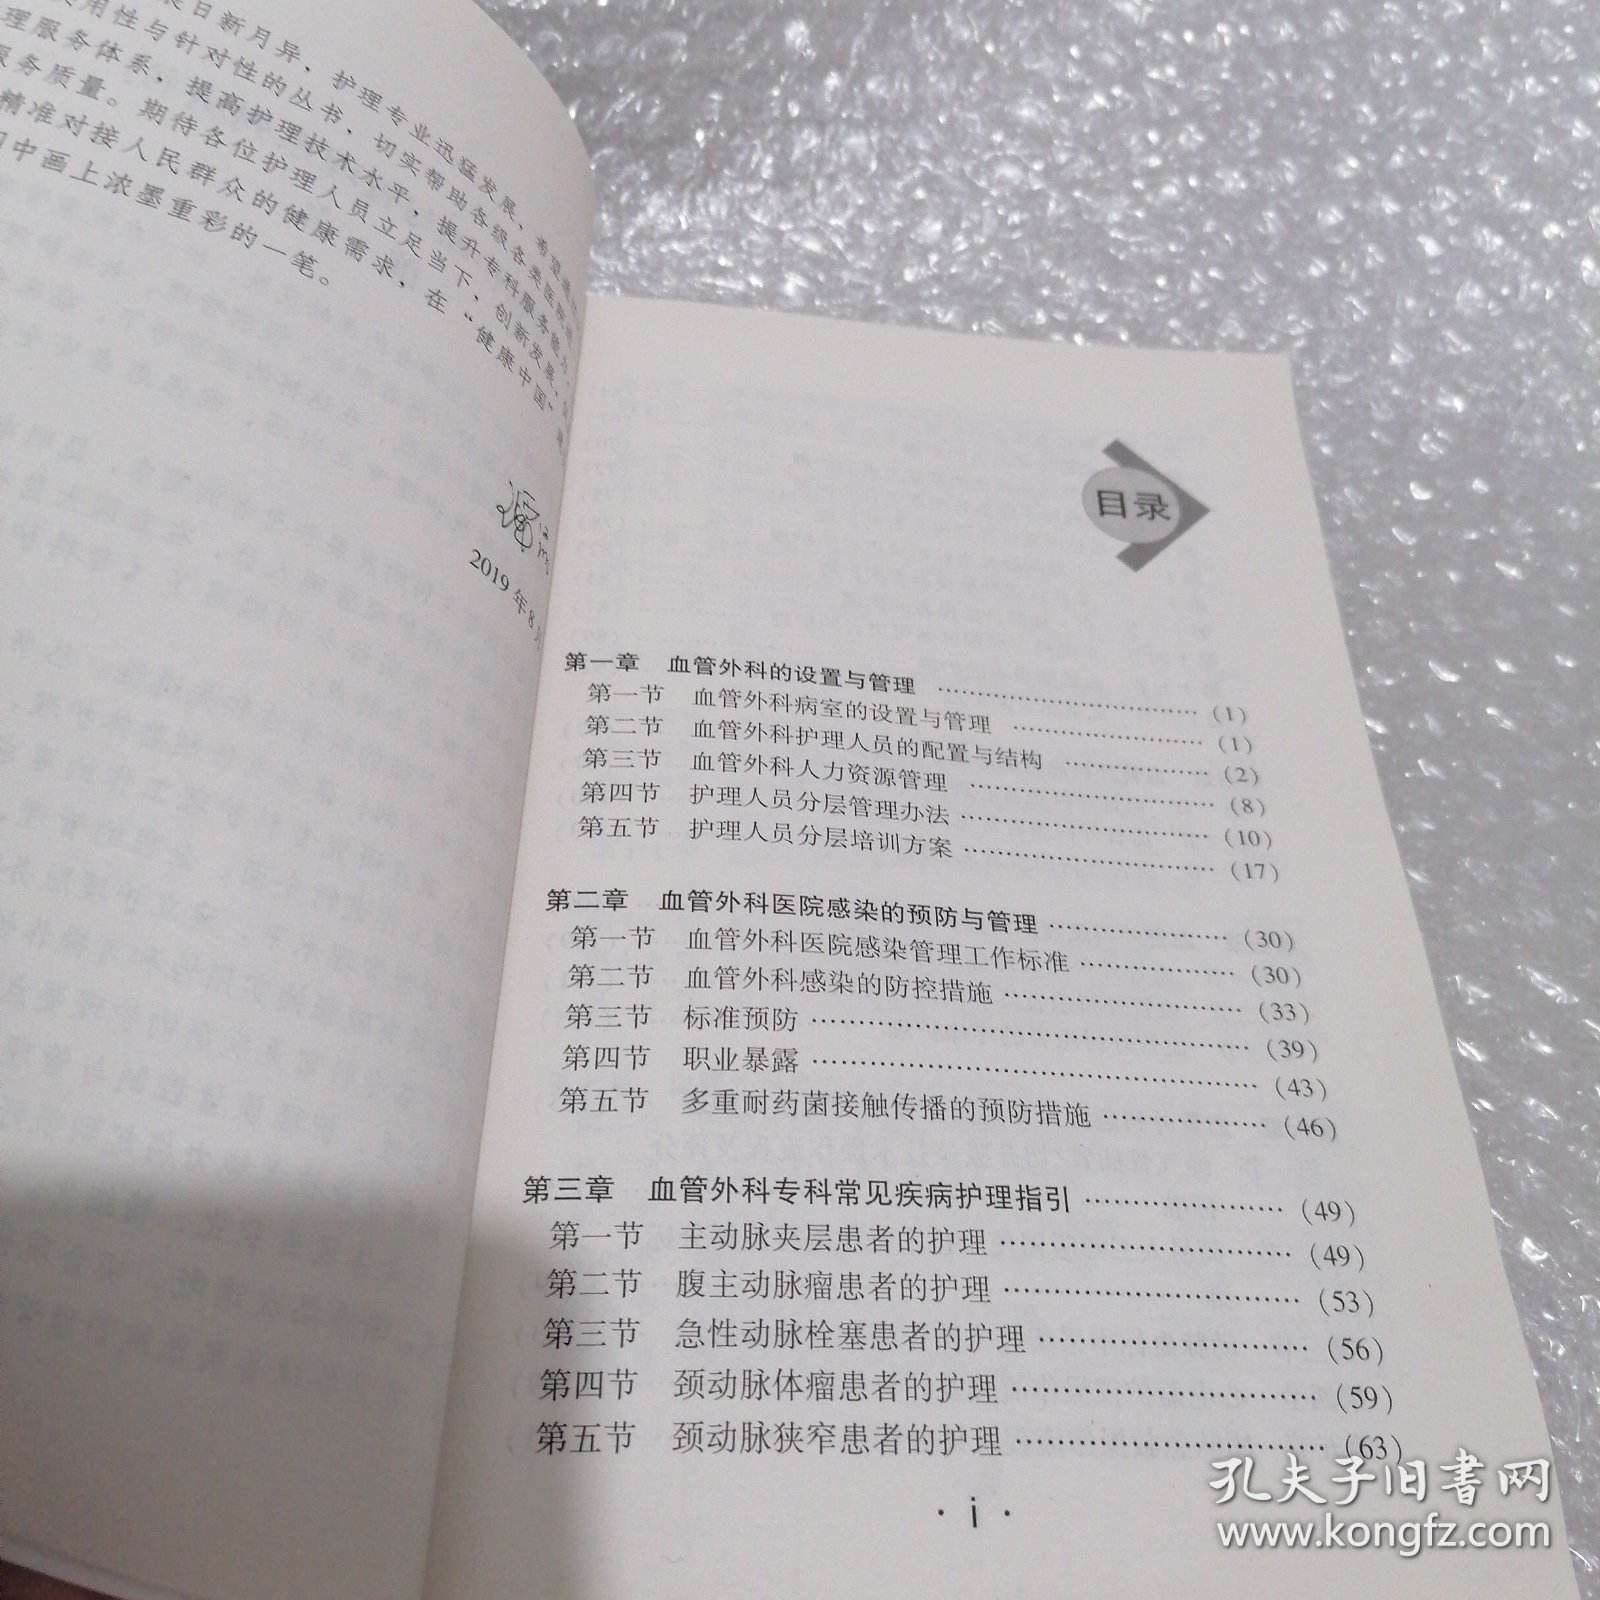 日新月异，护理专业迅猛发展，希望
用性与针对性的丛书，切实帮助各级各类医院
理服务体系，提高护理技术水平，提升专科服务能力，
服务质量。期待各位护理人员立足当下，创新发展，
精准对接人民群众的健康需求，在“健康中国”
中画上浓墨重彩的一笔。
2019年8月
目录
第一章 血管外科的设置与管理 ……………………………（1）
第一节 血管外科病室的设置与管理 ……………………（1）
第二节 血管外科护理人员的配置与结构 ………………（2）
第三节 血管外科人力资源管理 …………………………（8）
第四节 护理人员分层管理办法 …………………………（10）
第五节 护理人员分层培训方案 …………………………（17）
第二章 血管外科医院感染的预防与管理 …………………（30）
第一节 血管外科医院感染管理工作标准 ………………（30）
第二节 血管外科感染的防控措施 ………………………（33）
第三节 标准预防 …………………………………………（39）
第四节 职业暴露 …………………………………………（43）
第五节 多重耐药菌接触传播的预防措施 ………………（46）
第三章 血管外科专科常见疾病护理指引 …………………（49）
第一节 主动脉夹层患者的护理 …………………………（49）
第二节 腹主动脉瘤患者的护理 …………………………（53）
第三节 急性动脉栓塞患者的护理 ………………………（56）
第四节 颈动脉体瘤患者的护理 …………………………（59）
第五节 颈动脉狭窄患者的护理 …………………………（63）
· i ·
孔夫子旧书网
www.kongfz.com